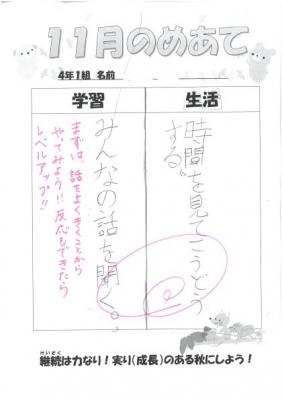 11月のめあて
4年1組 名前
学習
生活
時間を見てこうどう
する。
みんなの話を聞く。
まずは、話をよくきくことから
やってみよう!! 反応もできたら
レベルアップ!!
けいぞく
継続は力なり!実り(成長)のある秋にしよう!